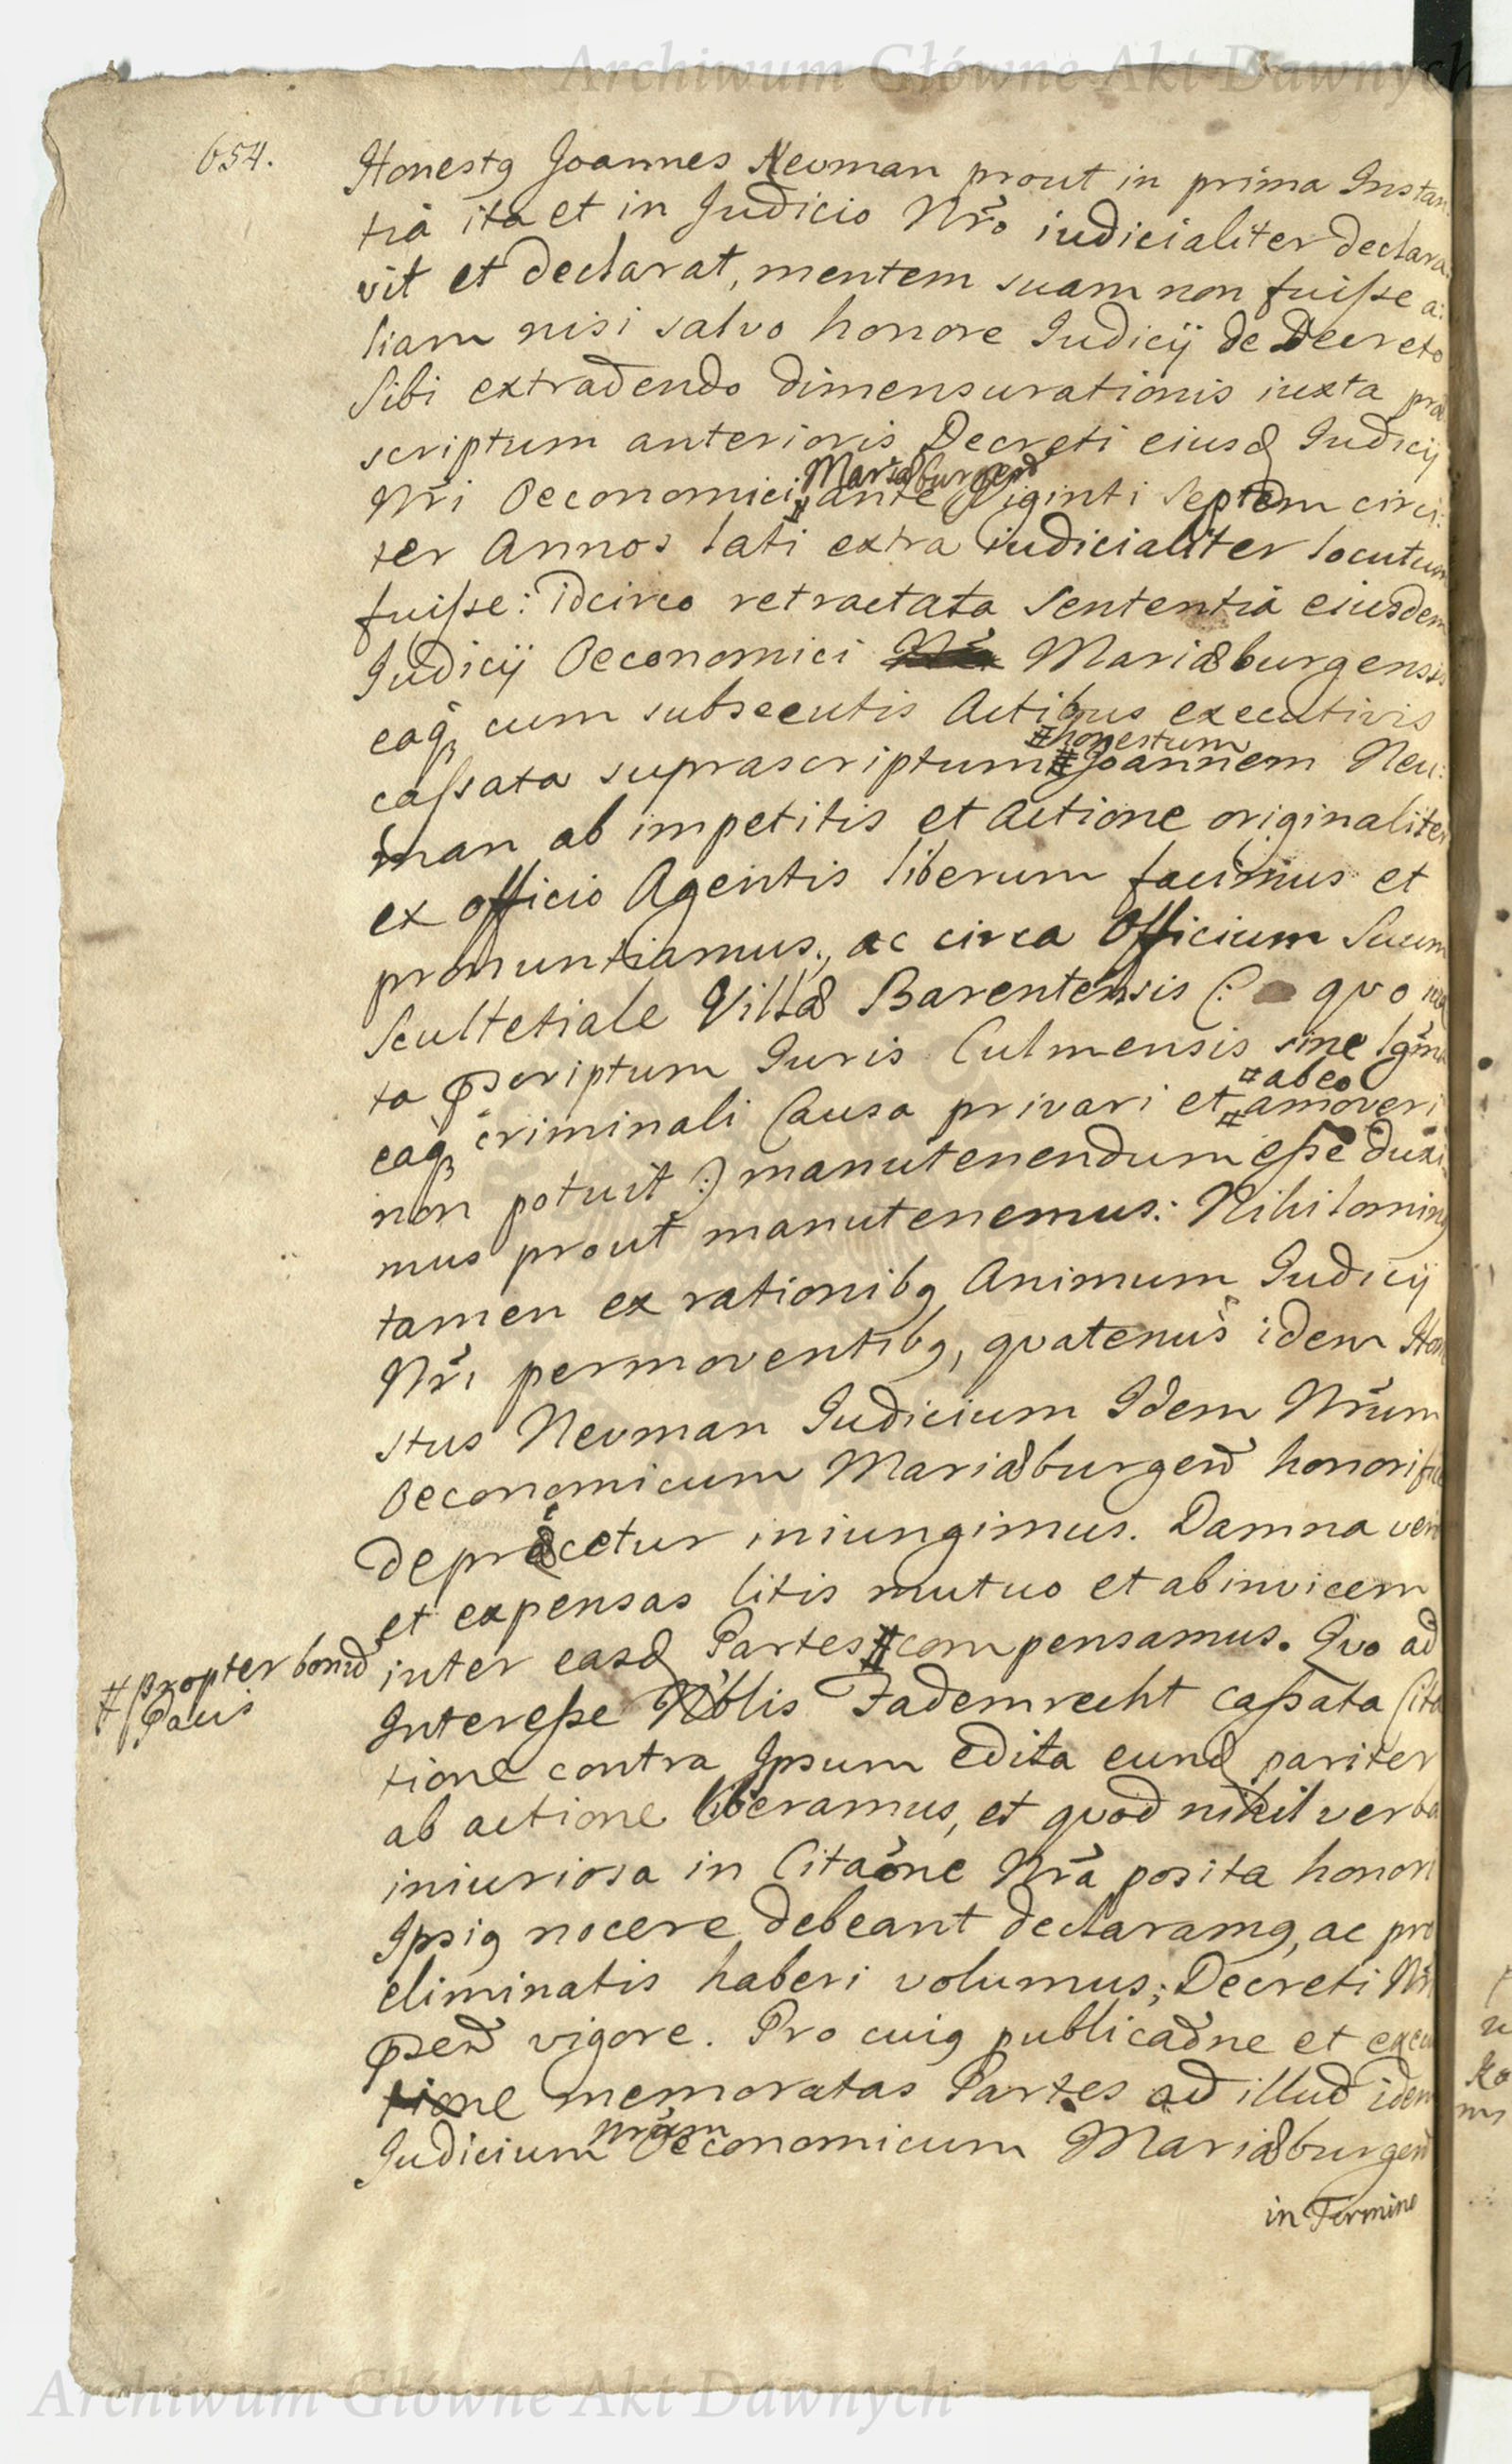 Archiwum Główne Akt Dawnych
654.
Honestq Joannes Neuman prout in prima Instan
tia ita et in Judicio Nrõ iudicialiter declara
vit et declarat, mentem suam non fuisse a:
liam nisi salvo honore Judicij de Decreto
Sibi extradendo dimensurationis iuxta præ
scriptum anterioris Decreti eiusd Judicij
Mariæburgen
Nrĩ Oeconomici # ante Viginti Septem circi:
ter Annos lati extra iudicialiter locutum
fuisse: idcirco retractata Sententia eiusdem
Judicij Oeconomici Mariæburgensis
eaq cum subsecutis Actibus executivis
# honestum
cassata suprascriptum # Joannem Neu:
man ab impetitis et Actione originaliter
ex officio Agentis liberum facimus et
pronuntiamus, ac circa Officium Suum
Scultetiale Villæ Barentensis (: quo
ta pscriptum Juris Culmensis sine lgma
# ab eo
eaq criminali Causa privari et # amoveri
non potuit :) manutenendum esse duxi
mus prout manutenemus: Nihilominq
tamen ex rationibq Animum Judicij
Nrĩ permoventibq, quatenus idem Hone
stus Neuman Judicium Idem Nrũm
Oeconomicum Mariæburgen honorifice
deprecetur iniungimus. Damna vero
et expensas litis mutuo et abinvicem
inter easd Partes # compensamus. Quo ad
# propter bonũ
Pacis
Interesse Nõblis Fademrecht cassata Cita
tione contra Ipsum edita eund pariter
ab actione liberamus, et quod nihil verba
iniuriosa in Citaõne Nrã posita honori
Ipsiq nocere debeant declaramq, ac pro
eliminatis haberi volumus; Decreti Nrĩ
psen vigore. Pro cuiq publicaõne et execu
tione memoratas Partes ad illud idem
nrũm
Judicium Oeconomicum Mariæburgen
in Termino
Archiwum Główne Akt Dawnych